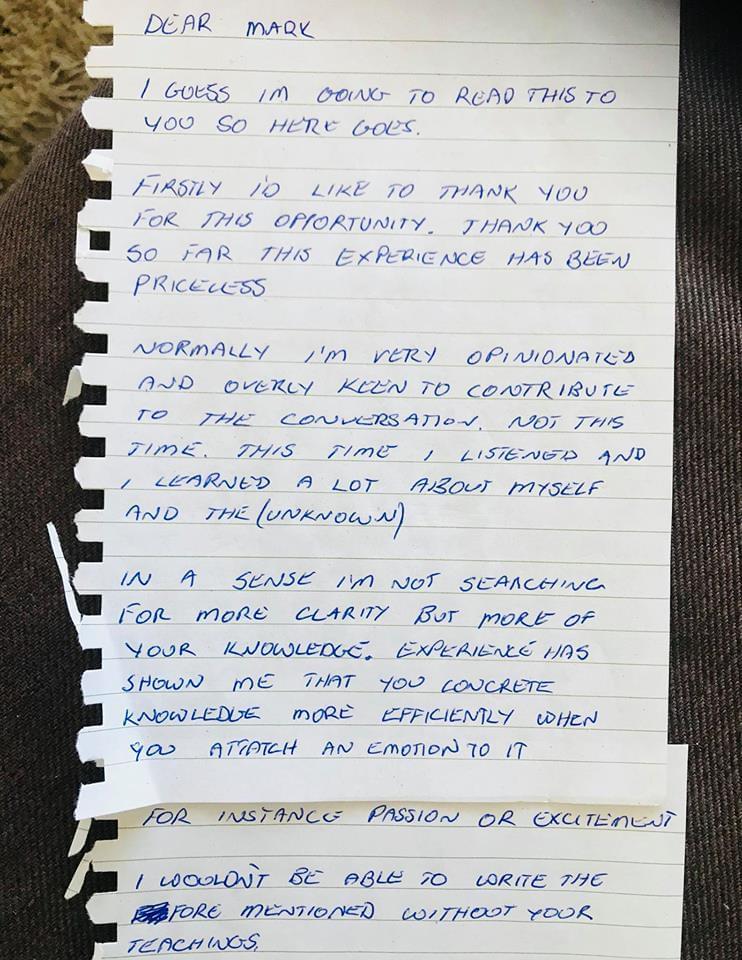 DEAR MARK
I GUESS IM GOING TO READ THIS TO
YOU SO HERE GOES.
FIRSTLY I'D LIKE TO THANK YOU
FOR THIS OPPORTUNITY. THANK YOU
SO FAR THIS EXPERIENCE HAS BEEN
PRICELESS
NORMALLY I'M VERY OPINIONATED
AND OVERLY KEEN TO CONTRIBUTE
TO THE CONVERSATION. NOT THIS
TIME. THIS TIME I LISTENED AND
I LEARNED A LOT ABOUT MYSELF
AND THE (UNKNOWN)
IN A SENSE I'M NOT SEARCHING
FOR MORE CLARITY BUT MORE OF
YOUR KNOWLEDGE. EXPERIENCE HAS
SHOWN ME THAT YOU CONCRETE
KNOWLEDGE MORE EFFICIENTLY WHEN
YOU ATTATCH AN EMOTION TO IT
FOR INSTANCE PASSION OR EXCITEMENT
I WOULDN'T BE ABLE TO WRITE THE
FORE MENTIONED WITHOUT YOUR
TEACHINGS.